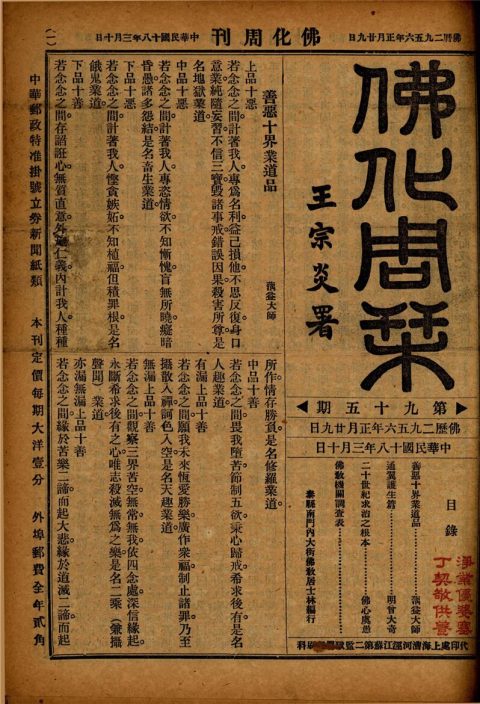 佛曆二九五六年正月廿九日
佛化周刊
中華民國十八年三月十日
(一)
佛化周栞
王宗炎署
第九十五期
佛曆二九五六年正月廿九日
中華民國十八年三月十日
目錄
善惡十界業道品 蕅益大師
通翼護生篇 明曾大奇
二十世紀求治之根本 佛心虞愚
佛教機關調查表
泰縣南門內大街佛教居士林編行
淨業優婆塞
丁契敬供養
代印處上海漕河涇江蘇第二監獄
善惡十界業道品
蕅益大師
上品十惡
若念念之間計著我人專為名利益己損他不思反復身口
意業純隨妄習不信三寶毀諸事戒錯誤因果殺害所尊是
名地獄業道。
中品十惡
若念念之間計著我人專恣情欲不知慚愧盲無所曉癡暗
昏愚諸多怨結是名畜生業道。
下品十惡
若念念之間計著我人慳貪嫉妬不知植福但積罪根是名
餓鬼業道。
下品十善
若念念之間存諂誑心無質直意外揚仁義內計我人種種
所作情存勝負是名修羅業道。
中品十善
若念念之間畏我墮苦節制五欲秉心歸戒希求後有是名
人趣業道。
有漏上品十善
若念念之間願我未來恆愛勝樂廣作衆福制止諸罪乃至
攝散入禪訶色入空是名天趣業道。
無漏上品十善
若念念之間觀察三界苦空無常無我依四念處深信緣起
永斷希求後有之心唯志殺滅無為之樂是名二乘(兼攝
聲聞)業道。
亦漏無漏上品十善
若念念之間緣於苦樂二諦而起大悲緣於道滅二諦而起
中華郵政特准掛號立券新聞紙類
本刊定價每期大洋壹分
外埠郵費全年貳角